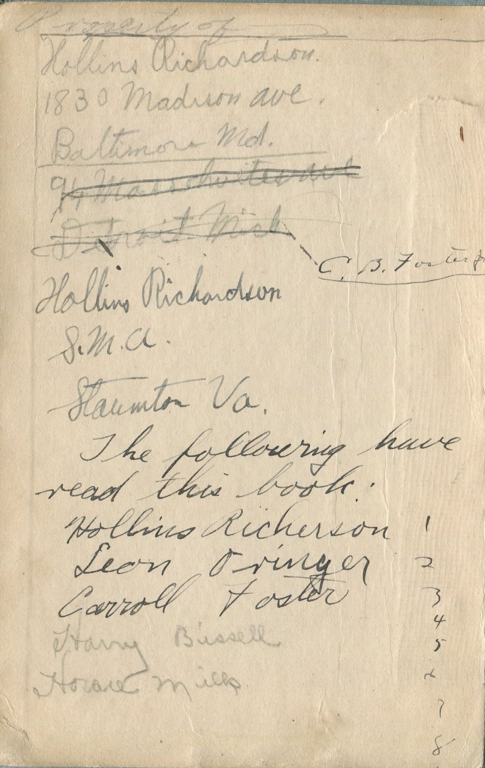 Property of
Hollins Richardson.
1830 Madison ave.
Baltimore Md.
Massachusettes ave
Detroit. Mich
C. B. Foster
Hollins Richardson
S.M.A.
Staunton Va.
The following have
read this book:
Hollins Richerson 1
Leon Oringer 2
Carroll Foster 3
4
Harry Bissell 5
Horace Mills
7
8